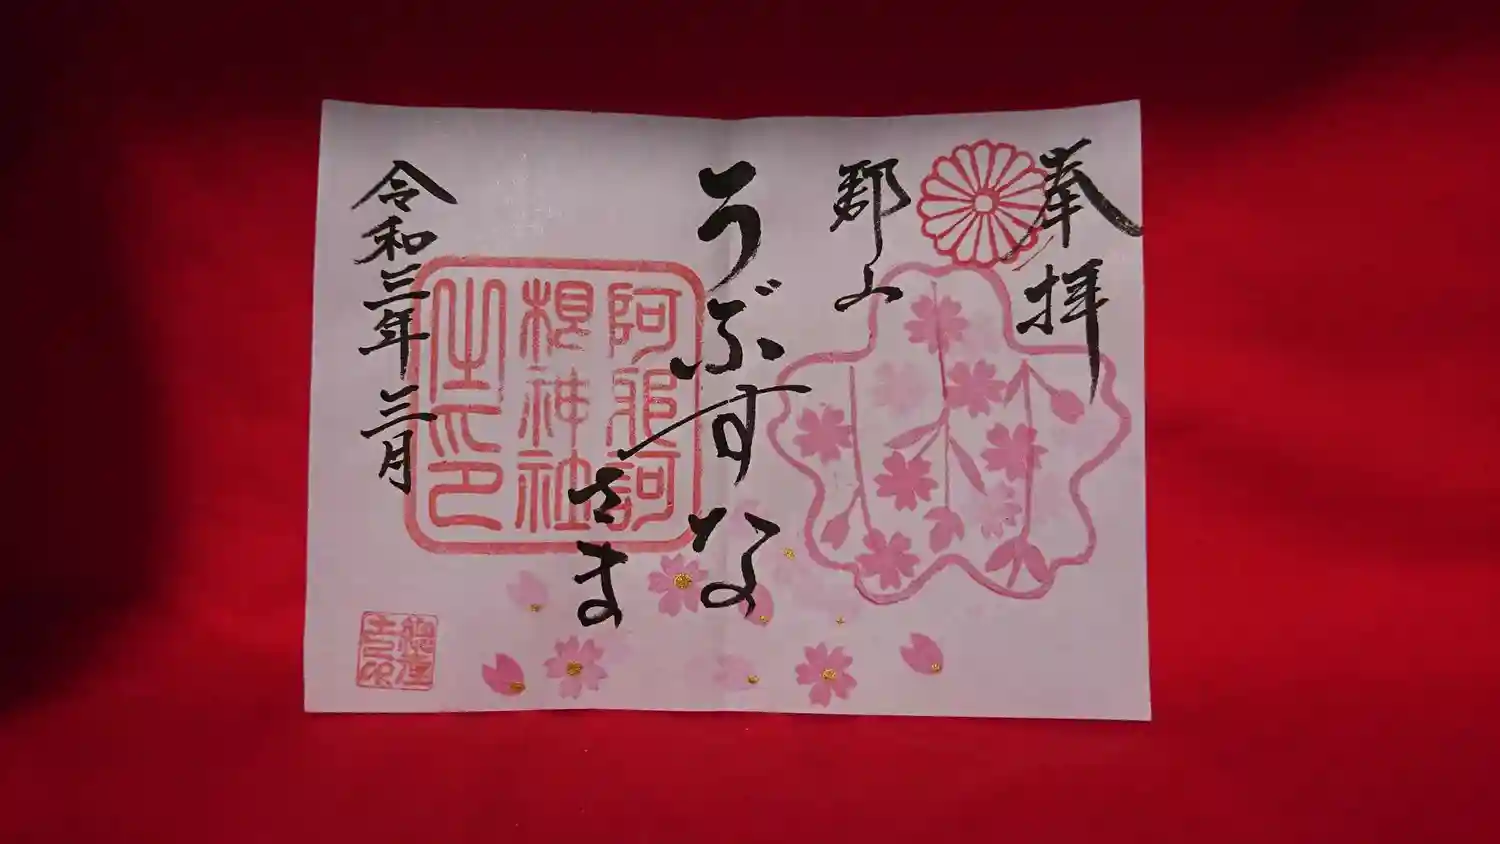 奉拝
郡山
うぶすな
さま
阿邪訶
根神社
之印
令和三年三月